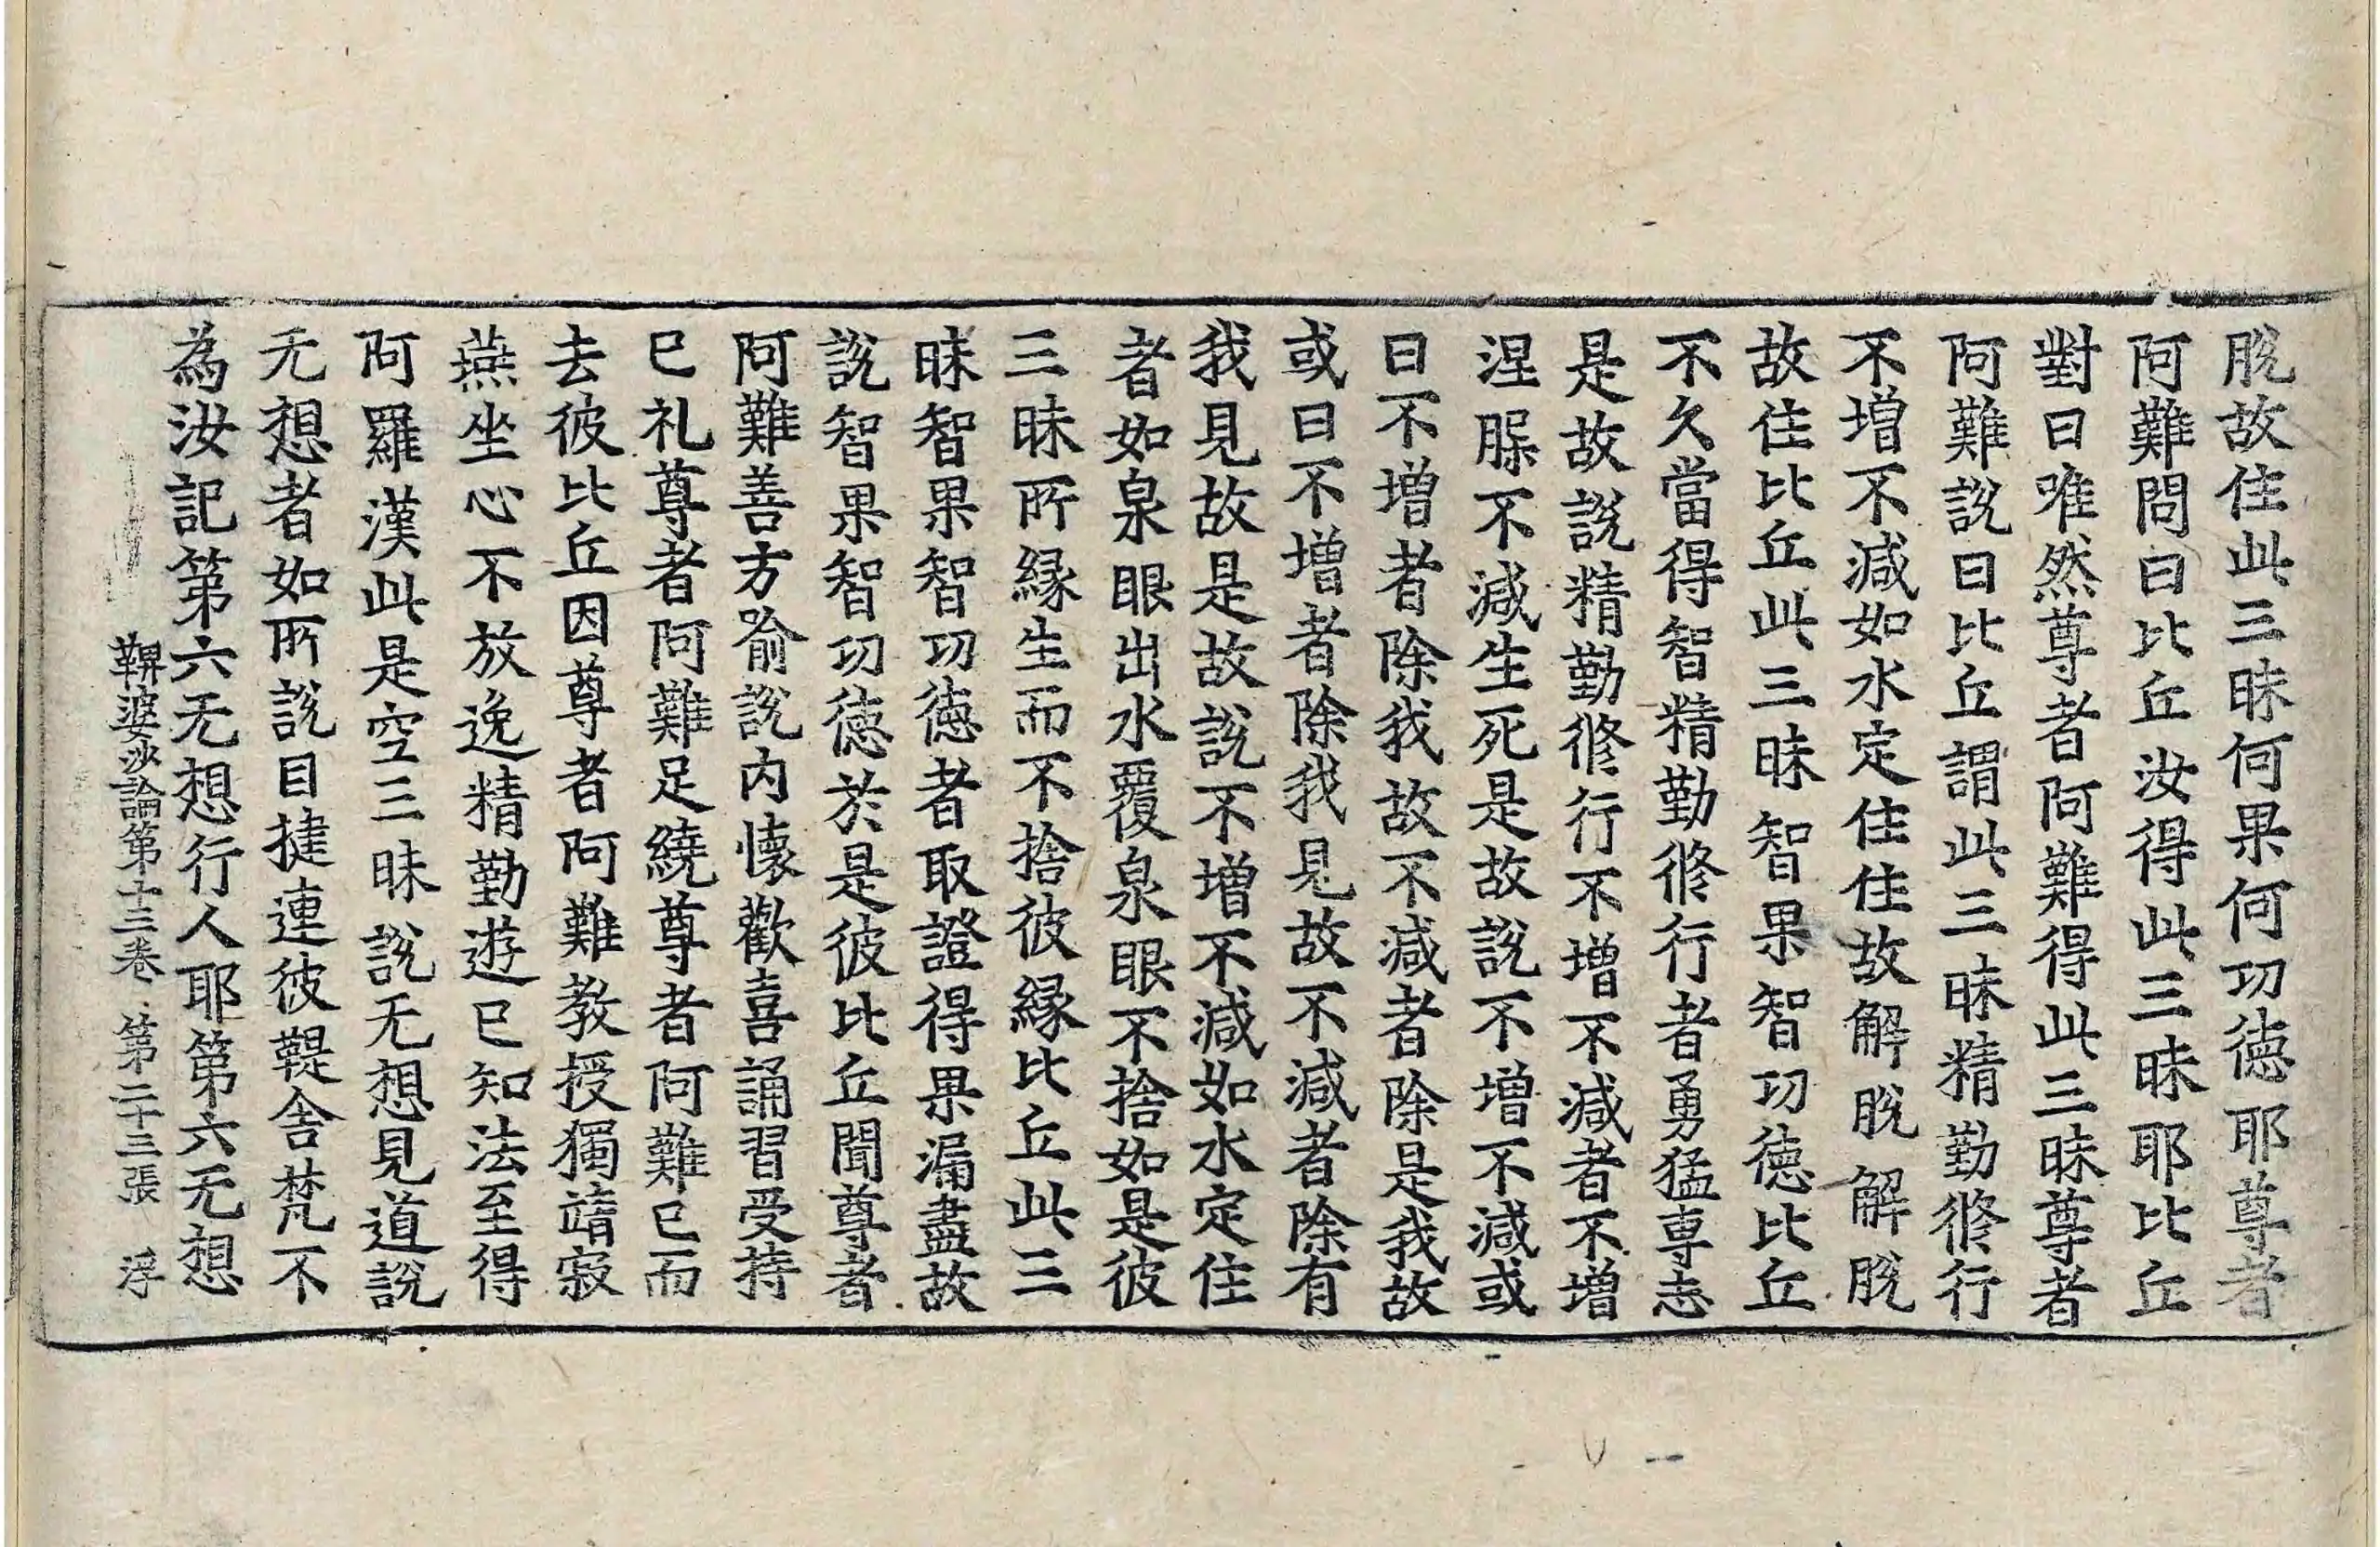 脫故住此三昧何果何功德耶尊者
阿難問曰比丘汝得此三昧耶比丘
對曰唯然尊者阿難得此三昧尊者
阿難說曰比丘謂此三昧精勤修行
不增不減如水定住住故解脫解脫
故住比丘此三昧智果智功德比丘
不久當得智精勤修行者勇猛專志
是故說精勤修行不增不減者不增
涅槃不減生死是故說不增不減或
曰不增者除我故不減者除是我故
或曰不增者除我見故不減者除有
我見故是故說不增不減如水定住
者如泉眼出水覆泉眼不捨如是彼
三昧所緣生而不捨彼緣比丘此三
昧智果智功德者取證得果漏盡故
說智果智功德於是彼比丘聞尊者
阿難善方喻說內懷歡喜誦習受持
已礼尊者阿難足繞尊者阿難已而
去彼比丘因尊者阿難教授獨靖寂
燕坐心不放逸精勤遊已知法至得
阿羅漢此是空三昧說无想見道說
无想者如所說目揵連彼鞮舍梵不
為汝記第六无想行人耶第六无想
鞞婆沙論第十三卷 第二十三張 浮